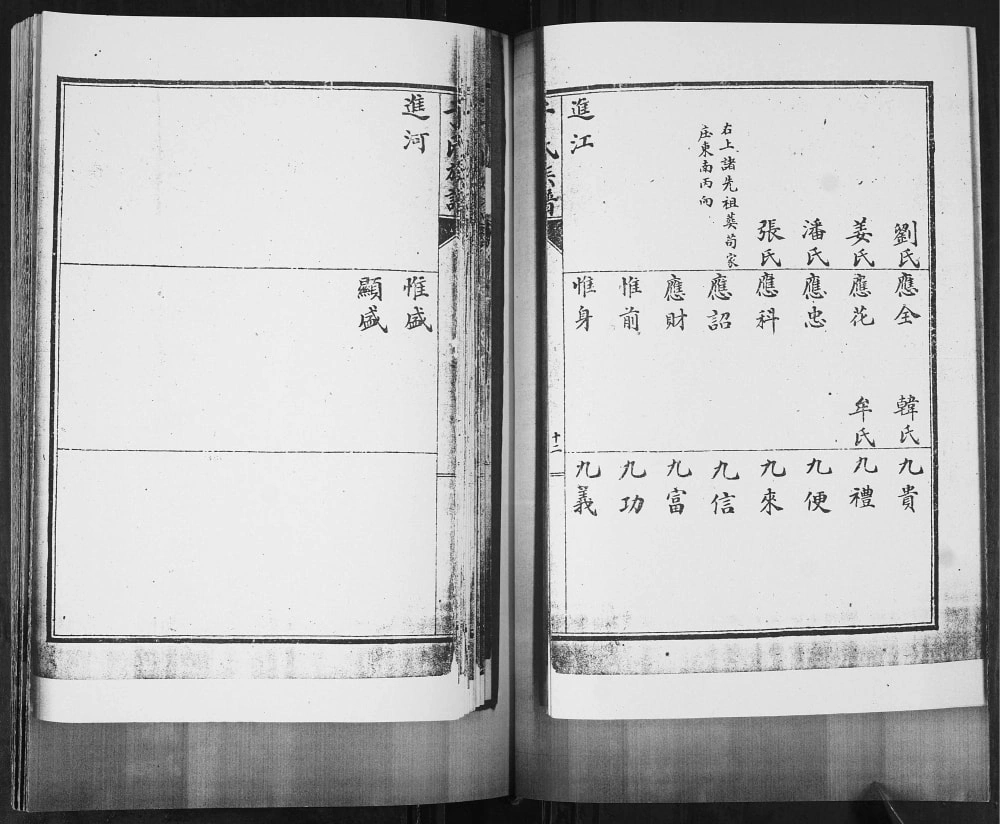 劉氏
姜氏
潘氏
張氏
右上諸先祖葬荀家
庄東南丙向
進江
應全
韓氏
應花
牟氏
應忠
應科
應詔
應財
惟前
惟身
九貴
九禮
九便
九來
九信
九富
九功
九義
氏族譜
十二
氏族譜
進河
惟盛
顯盛